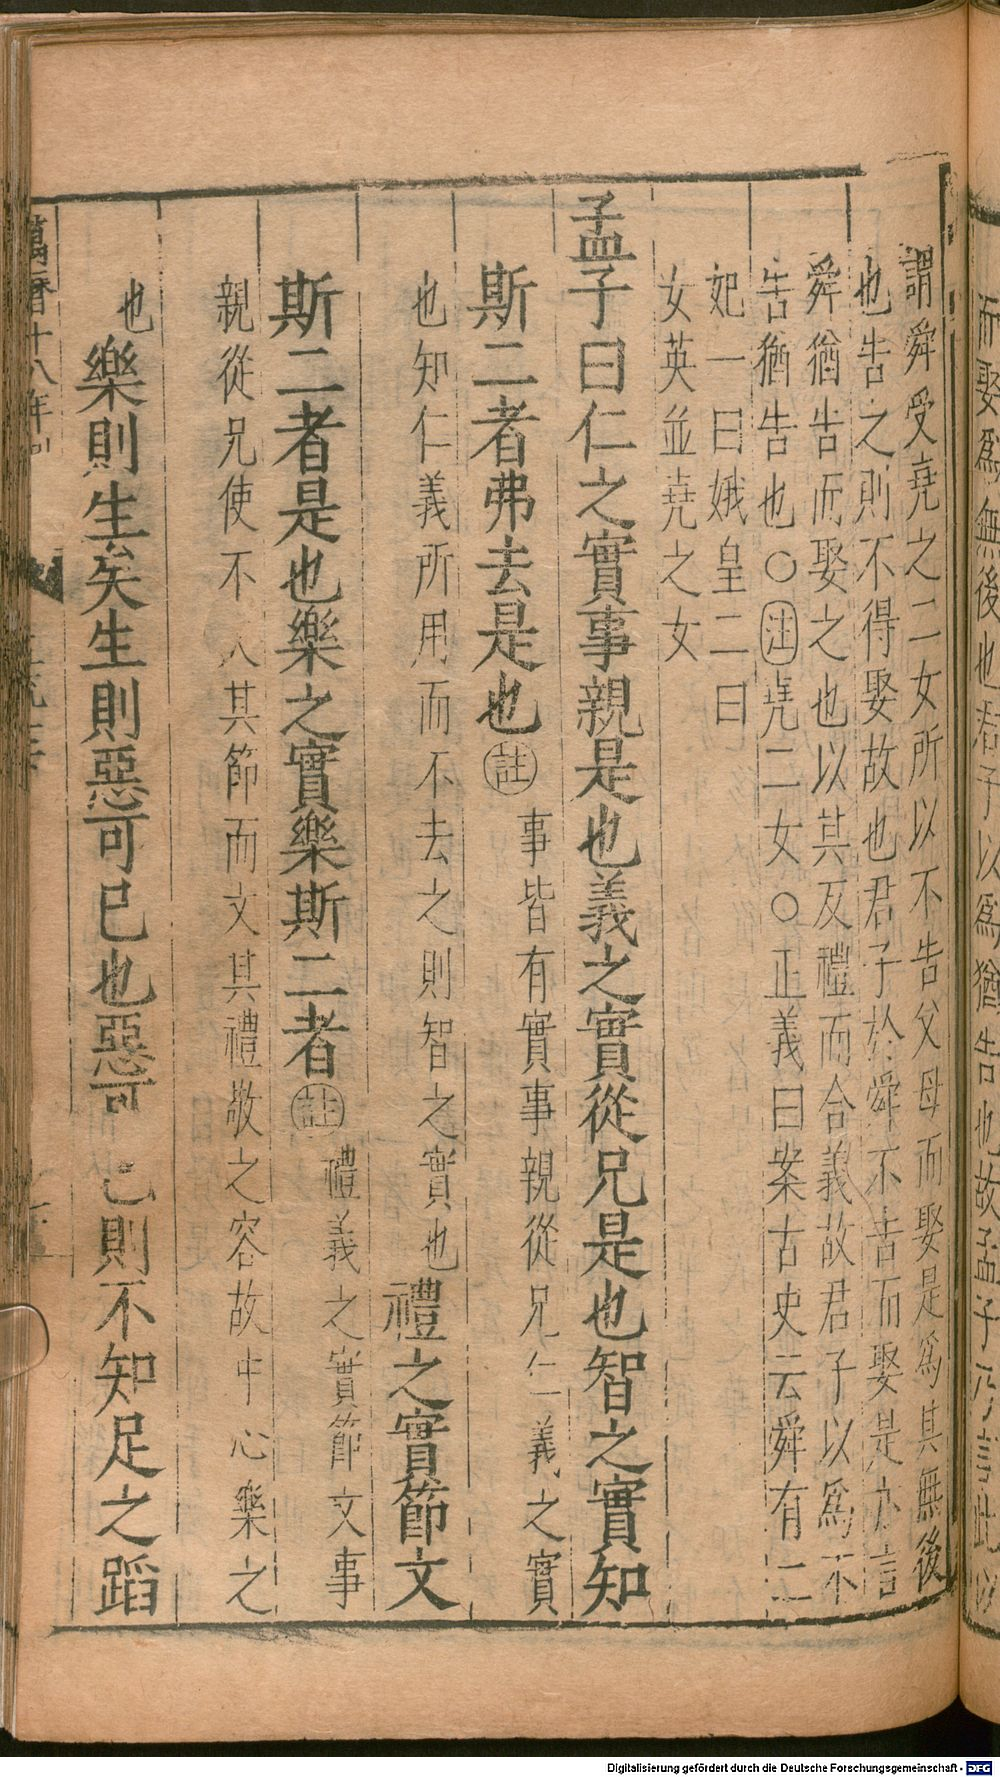 而娶為無後也君子以為猶告也故孟子乃言此以
謂舜受堯之二女所以不告父母而娶是為其無後
也告之則不得娶故也君子於舜不告而娶是亦言
舜猶告而娶之也以其反禮而合義故君子以為不
告猶告也○注堯二女○正義曰案古史云舜有二
妃一曰娥皇二曰
女英並堯之女
孟子曰仁之實事親是也義之實從兄是也智之實知
斯二者弗去是也註事皆有實事親從兄仁義之實
也知仁義所用而不去之則智之實也禮之實節文
斯二者是也樂之實樂斯二者註禮義之實節文事
親從兄使不其節而文其禮敬之容故中心樂之
也樂則生矣生則惡可已也惡可已則不知足之蹈
萬曆十八年刊
Digitalisierung gefördert durch die Deutsche Forschungsgemeinschaft - DFG